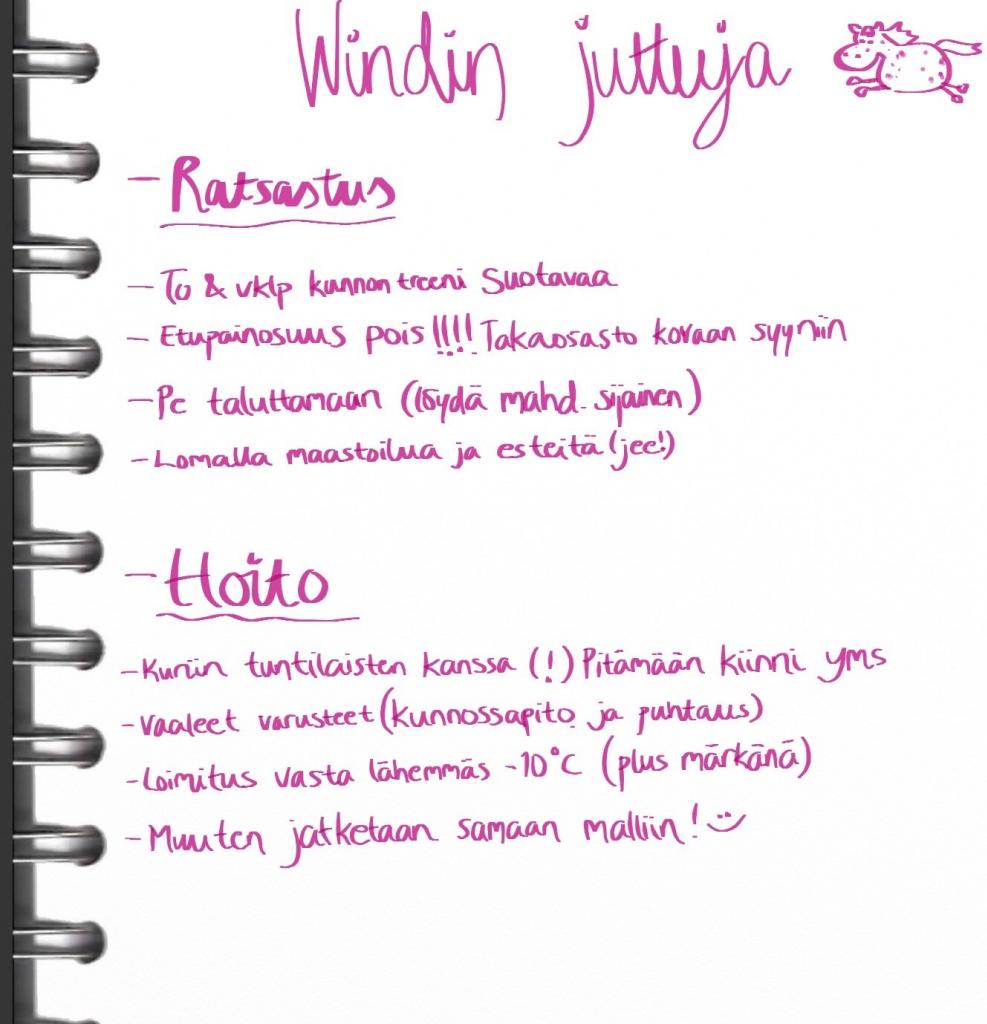 Windin juttuja
- Ratsastus
- To & vklp kunnon treeni suotavaa
- Etupainosuus pois!!!! Takaosasto kovaan syyniin
- Pe taluttamaan (löydä mahd. sijainen)
- Lomalla maastoilua ja esteitä (jee!)
- Hoito
- Kuriin tuntilaisten kanssa (!) Pitämään kiinni yms
- Vaaleet varusteet (kunnossapito ja puhtaus)
- Loimitus vasta lähemmäs -10°C (plus märkänä)
- Muuten jatketaan samaan malliin! :)